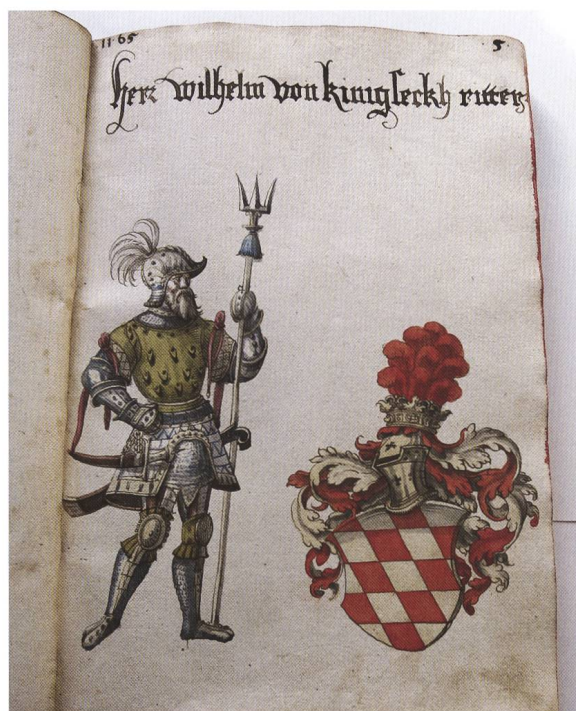 1165 5
herr wilhelm von kinigseckh ritter